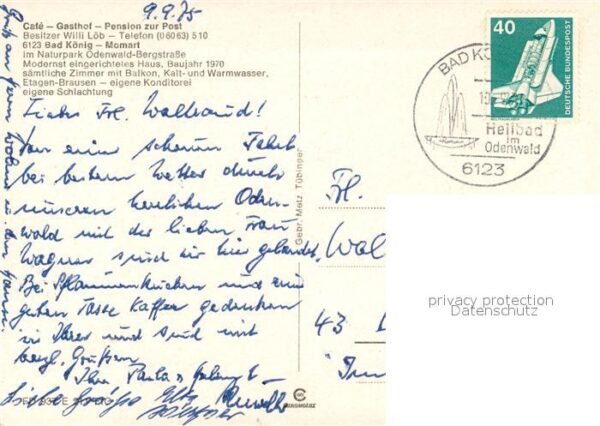 9.9.75
Café – Gasthof – Pension zur Post
Besitzer Willi Löb – Telefon (06063) 510
6123 Bad König – Momart
im Naturpark Odenwald-Bergstraße
Modernst eingerichtetes Haus, Baujahr 1970
sämtliche Zimmer mit Balkon, Kalt- und Warmwasser,
Etagen-Brausen – eigene Konditorei
eigene Schlachtung
Liebes Frl. Waltraud!
Von einer schönen Fahrt
bei bestem Wetter durch
unseren herrlichen Oden-
wald mit der lieben Frau
Wagner sind wir hier gelandet.
Bei Pflaumenkuchen und einer
guten Tasse Kaffee gedenken
wir Ihrer und sind mit
herzl. Grüßen
Ihre Paula
Liebe Grüße
Gebr. Metz Tübingen
40
DEUTSCHE BUNDESPOST
BAD KÖ
Heilbad
im
Odenwald
6123
Frl.
Wal
43
privacy protection
Datenschutz